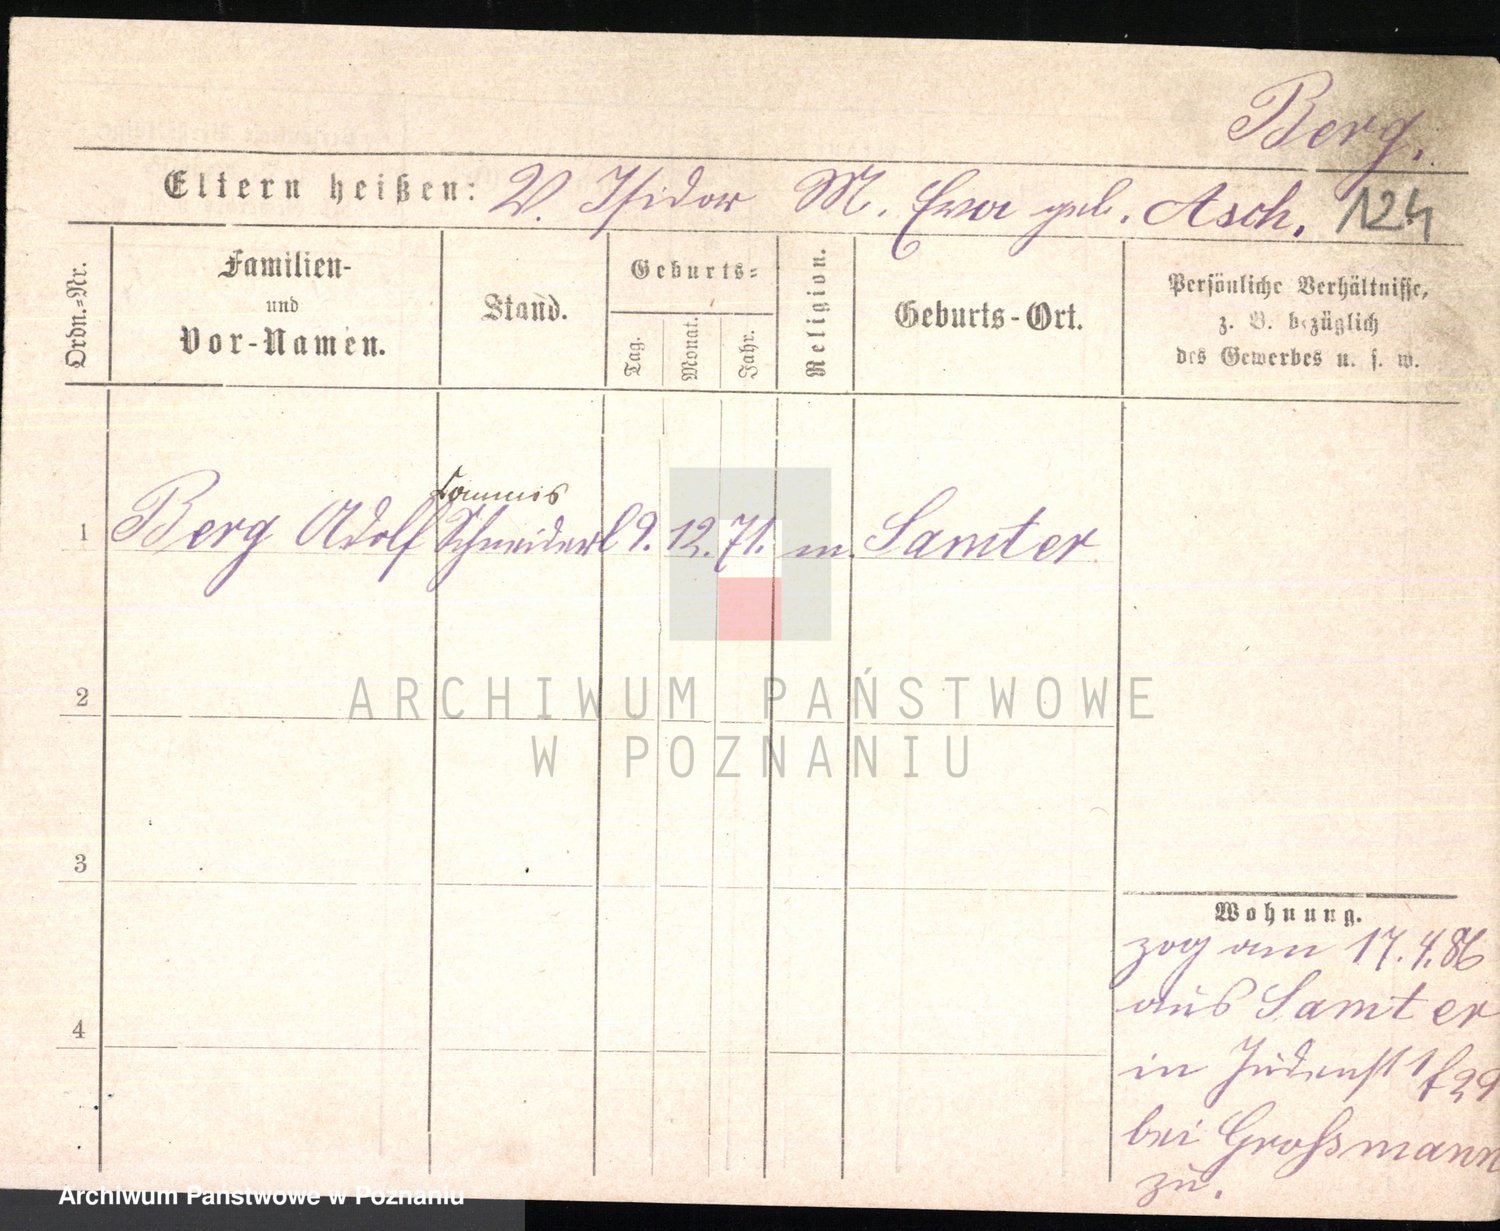 Berg.
Eltern heißen: V. Isidor M. Eva geb. Asch. 124
Ordn.=Nr.
Familien-
und
Vor-Namen.
Stand.
Geburts=
Tag.
Monat.
Jahr.
Religion.
Geburts-Ort.
Persönliche Verhältnisse,
z. B. bezüglich
des Gewerbes u. s. w.
Commis
1 Berg Adolf Schneiderl 9. 12. 71. m. Samter
2
ARCHIWUM PAŃSTWOWE
W POZNANIU
3
4
Wohnung.
zog am 17.4.86
aus Samter
in Judenst
bei Großmann
zu.
Archiwum Państwowe w Poznaniu